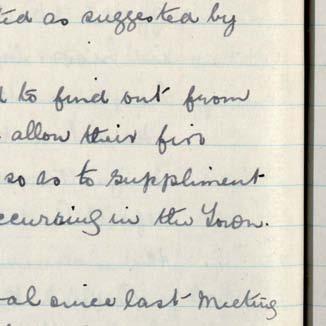 ted as suggested by
d to find out from
allow their fire
so as to suppliment
ccurring in the Town.
al since last Meeting